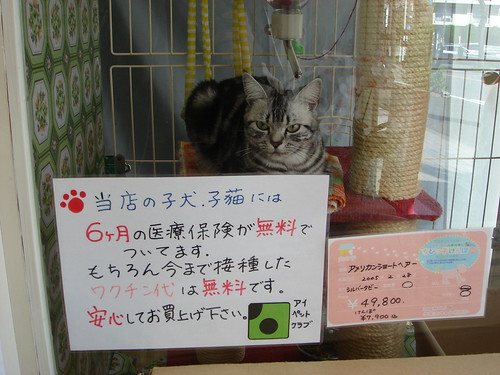 当店の子犬.子猫には
6ヶ月の医療保険が無料で
ついてます.
もちろん今まで接種した
ワクチン代は無料です。
安心してお買上げ下さい。
アイ
ペット
クラブ
アメリカンショートヘアー
2005 2 28
シルバータビー
¥49,800.